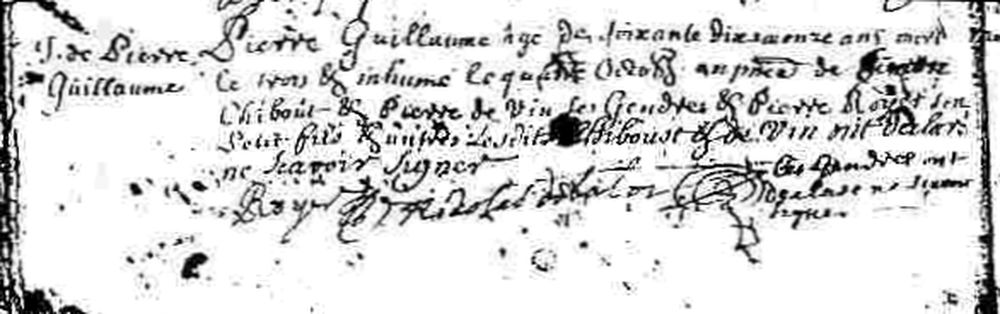 S. de Pierre
Guillaume
Pierre Guillaume âge de soixante dix onze ans mort
le trois & inhumé le quatre Octob en pnce de Simon
Thibout & Pierre de Vin ses Gendres & Pierre Royer son
Petit fils & autres Lesdits Thiboust & de Vin ont declaré
ne scavoir signer
Ces Gendres ont
declare ne scavoir
signer
Royer